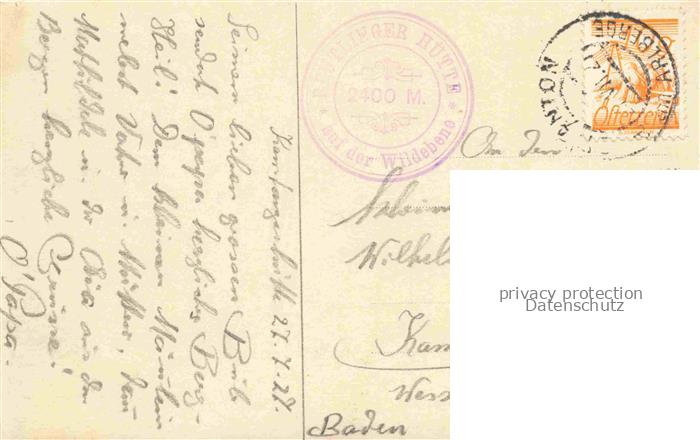 27.7.27.
Seinem lieben grossen Bub
sendet Opapa herzliches Berg-
Heil! Dem kleinen
nebst Vater u. Mutter, dem
u. Dir Bub aus den
Bergen herzliche Grüsse!
O'Papa.
HÜTTE
2400 M.
auf der Wildebene
ANTON
ARLBERG
Österreich
An den
Wilhel
Kam
Wess
Baden
privacy protection
Datenschutz